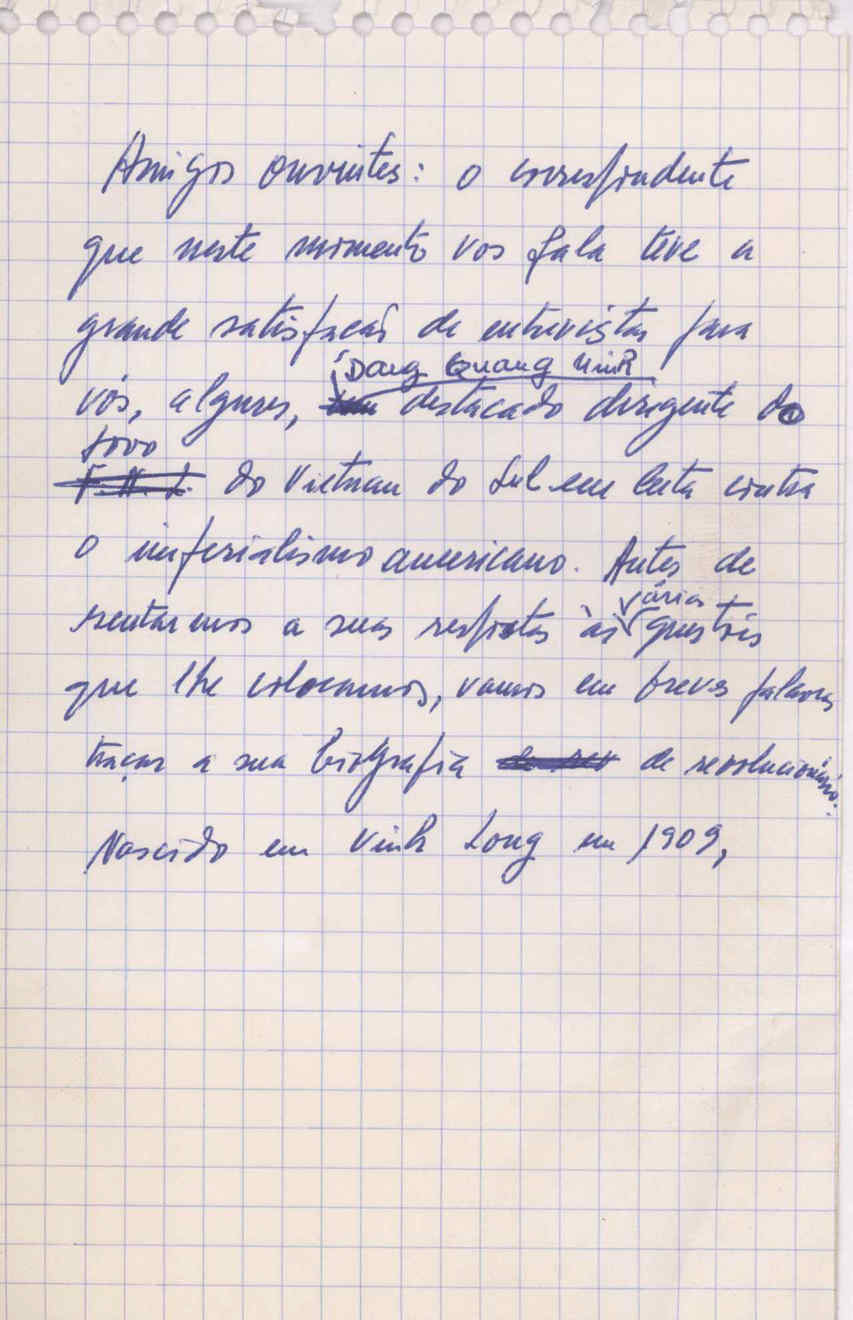 Amigos ouvintes: o correspondente
que neste momento vos fala teve a
grande satisfação de entrevistar para
Dang Quang Minh
vós, algures, um destacado dirigente do
povo
F.N.L. do Vietnam do Sul em luta contra
o imperialismo americano. Antes de
várias
escutarmos a suas respostas às questões
que lhe colocamos, vamos em breves palavras
traçar a sua biografia de revolucionário.
Nascido em Vinh Long em 1909,